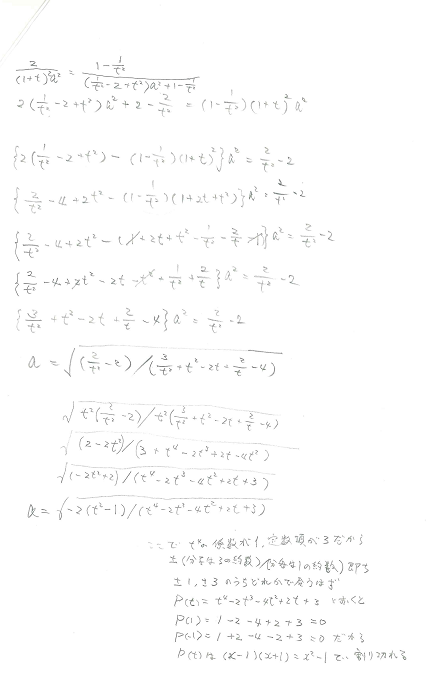 2/((1+t)²a²) = (1-1/t²)/((1/t²-2+t²)a²+1-1/t²)
2(1/t²-2+t²)a²+2-2/t² = (1-1/t²)(1+t)²a²
{2(1/t²-2+t²)-(1-1/t²)(1+t)²}a² = 2/t²-2
{2/t²-4+2t²-(1-1/t²)(1+2t+t²)}a² = 2/t²-2
{2/t²-4+2t²-(1+2t+t²-1/t²-2/t-1)}a² = 2/t²-2
{2/t²-4+2t²-2t-t²+1/t²+2/t}a² = 2/t²-2
{3/t²+t²-2t+2/t-4}a² = 2/t²-2
a = √(2/t²-2)/(3/t²+t²-2t+2/t-4)
√t²(2/t²-2)/t²(3/t²+t²-2t+2/t-4)
√(2-2t²)/(3+t⁴-2t³+2t-4t²)
√(-2t²+2)/(t⁴-2t³-4t²+2t+3)
a = √-2(t²-1)/(t⁴-2t³-4t²+2t+3)
ここで t⁴の係数が1, 定数項が3だから
±(分子は3の約数)/(分母は1の約数) 即ち
±1, ±3 のうちどれかで合うはず
P(t) = t⁴-2t³-4t²+2t+3 とおくと
P(1) = 1-2-4+2+3=0
P(-1) = 1+2-4-2+3=0 だから
P(t)は (x-1)(x+1)=x²-1 で、割り切れる